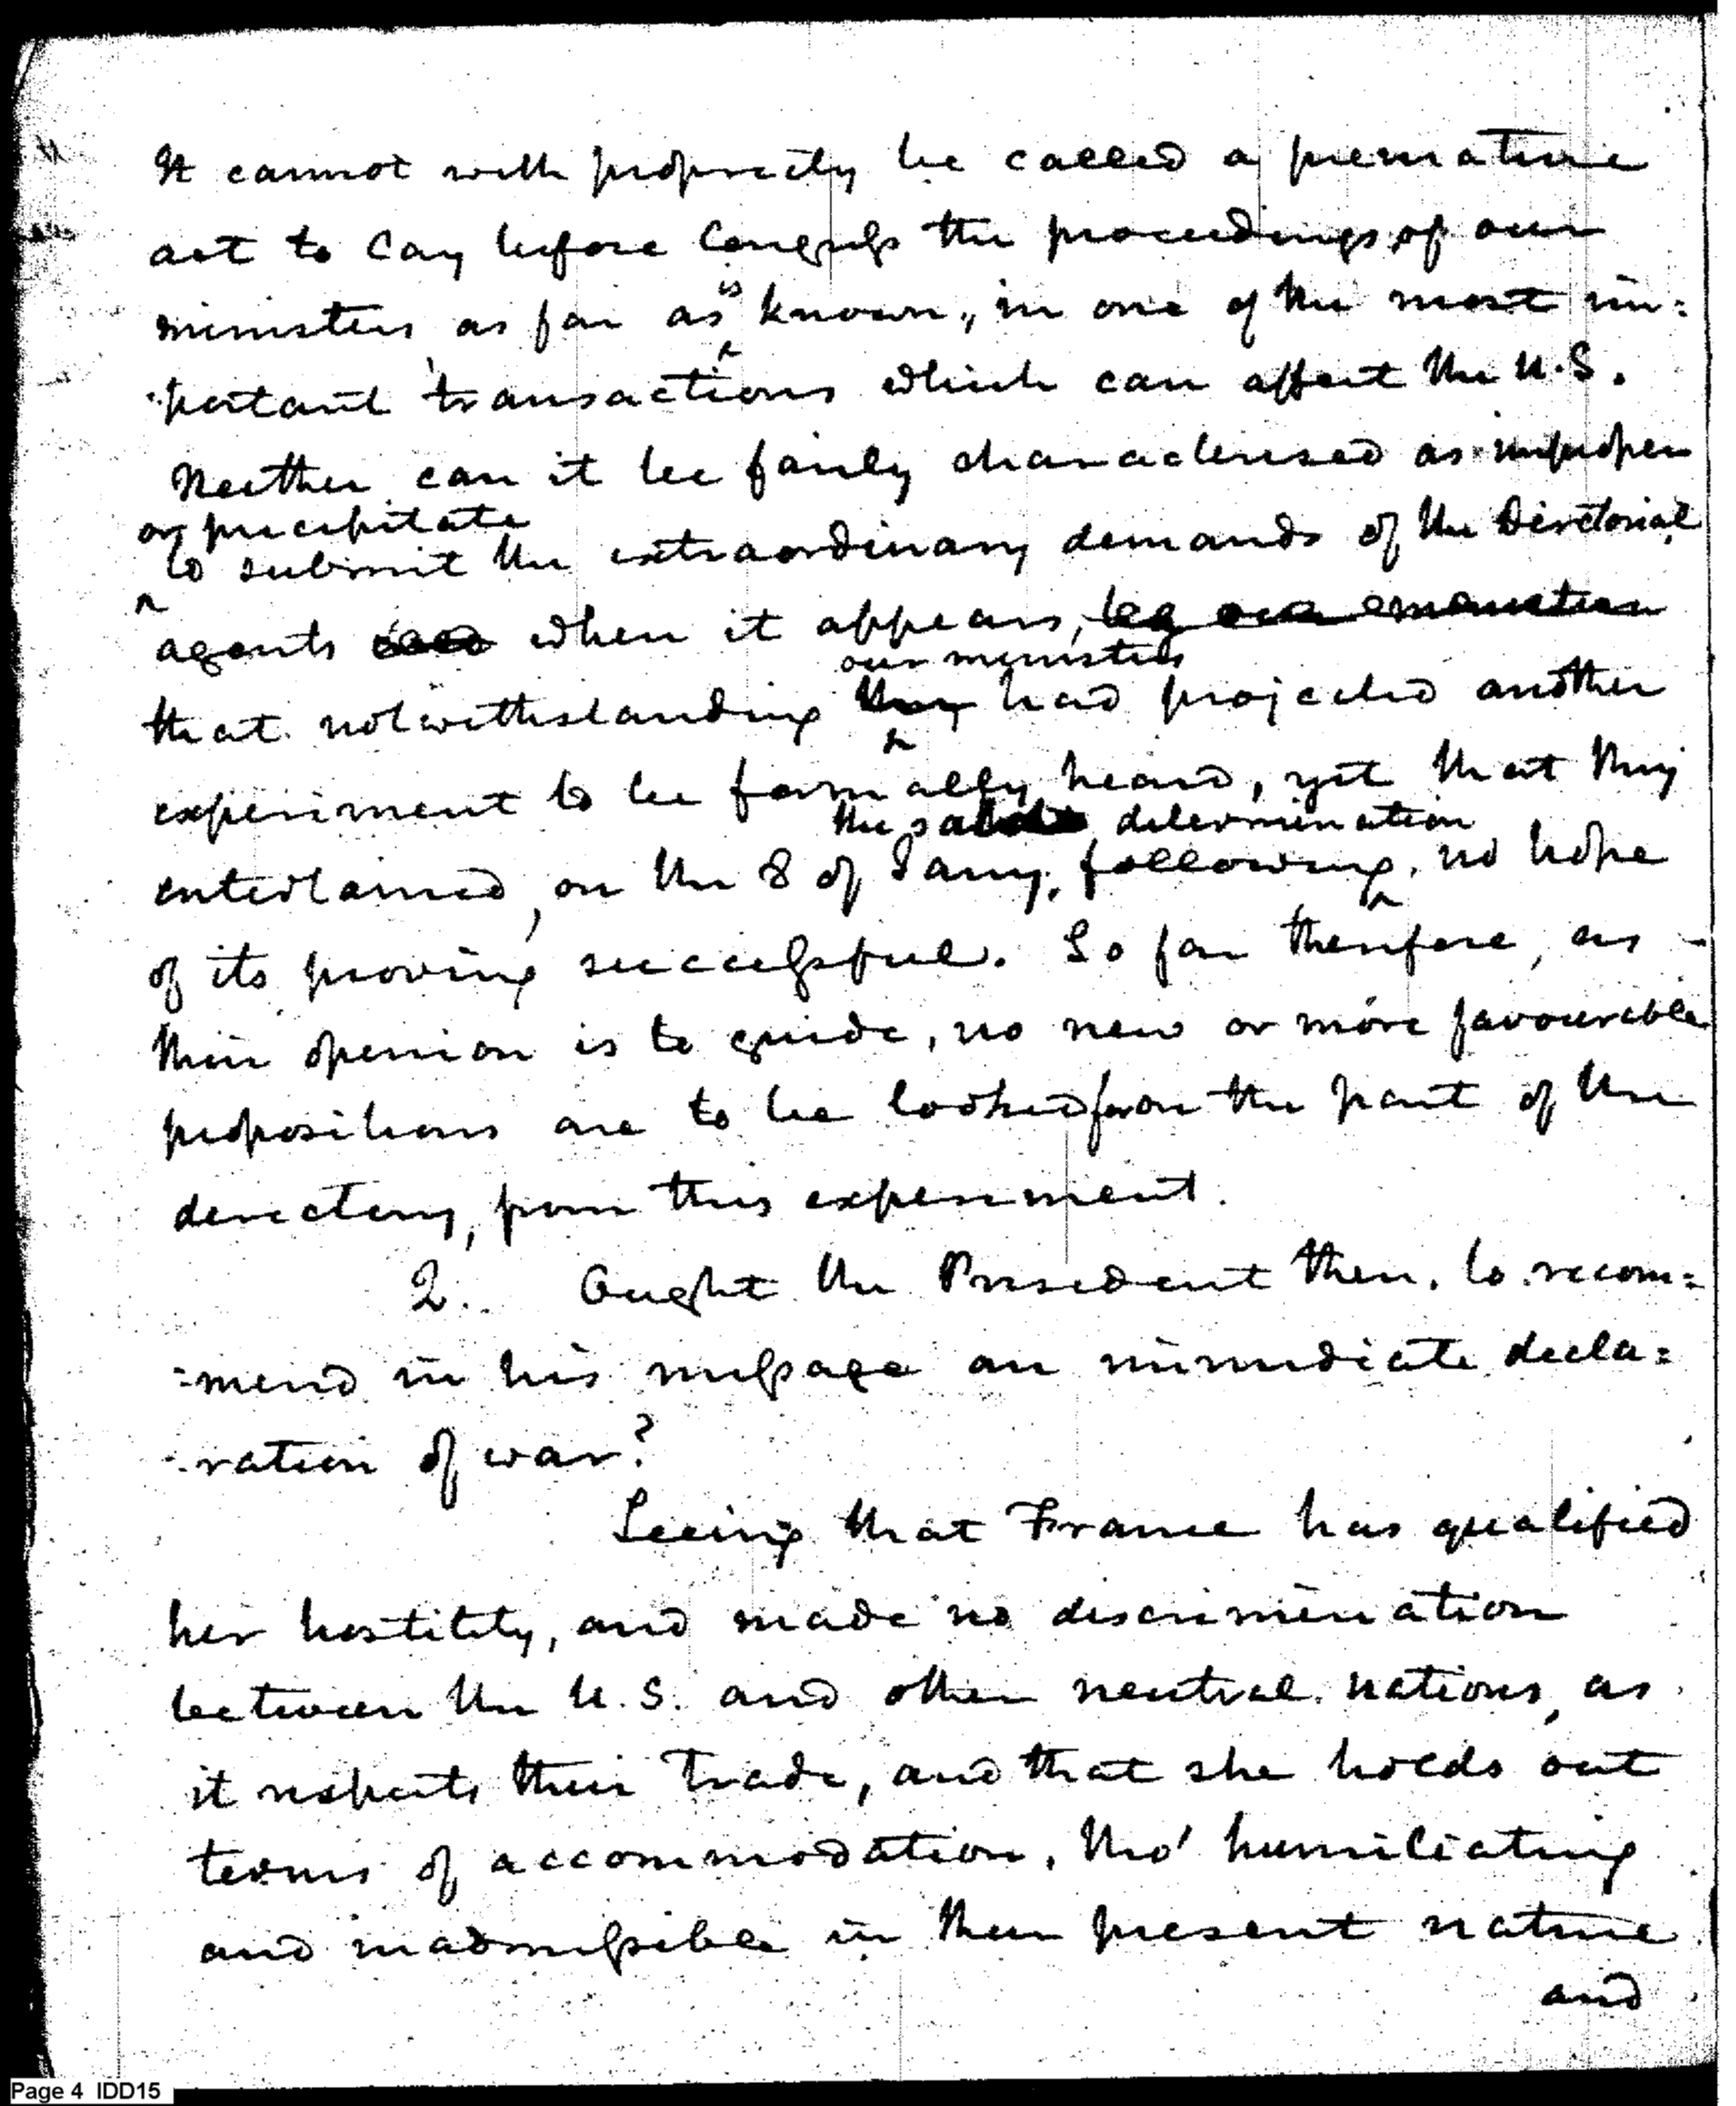 It cannot with propriety be called a premature
act to lay before Congress the proceedings of our
is
ministers as far as known, in one of the most im=
=portant transactions which can affect the U.S.
Neither can it be fairly characterised as improper
or precipitate
to submit the extraordinary demands of the Directorial
agents when it appears, by our
our ministers
that notwithstanding they had projected another
experiment to be formally heard, yet that they
the determination
entertained, on the 8 of Jany. following, no hope
of its proving successful. So far therefore, as
their opinion is to guide, no new or more favourable
propositions are to be looked for on the part of the
directory, from this experiment.
2. Ought the President then, to recom=
=mend in his message an immediate decla=
=ration of war?
Seeing that France has qualified
her hostility, and made no discrimination
between the U.S. and other neutral nations, as
it respects their Trade, and that she holds out
terms of accommodation, tho' humiliating
and inadmissible in their present nature
and
Page 4 IDD15